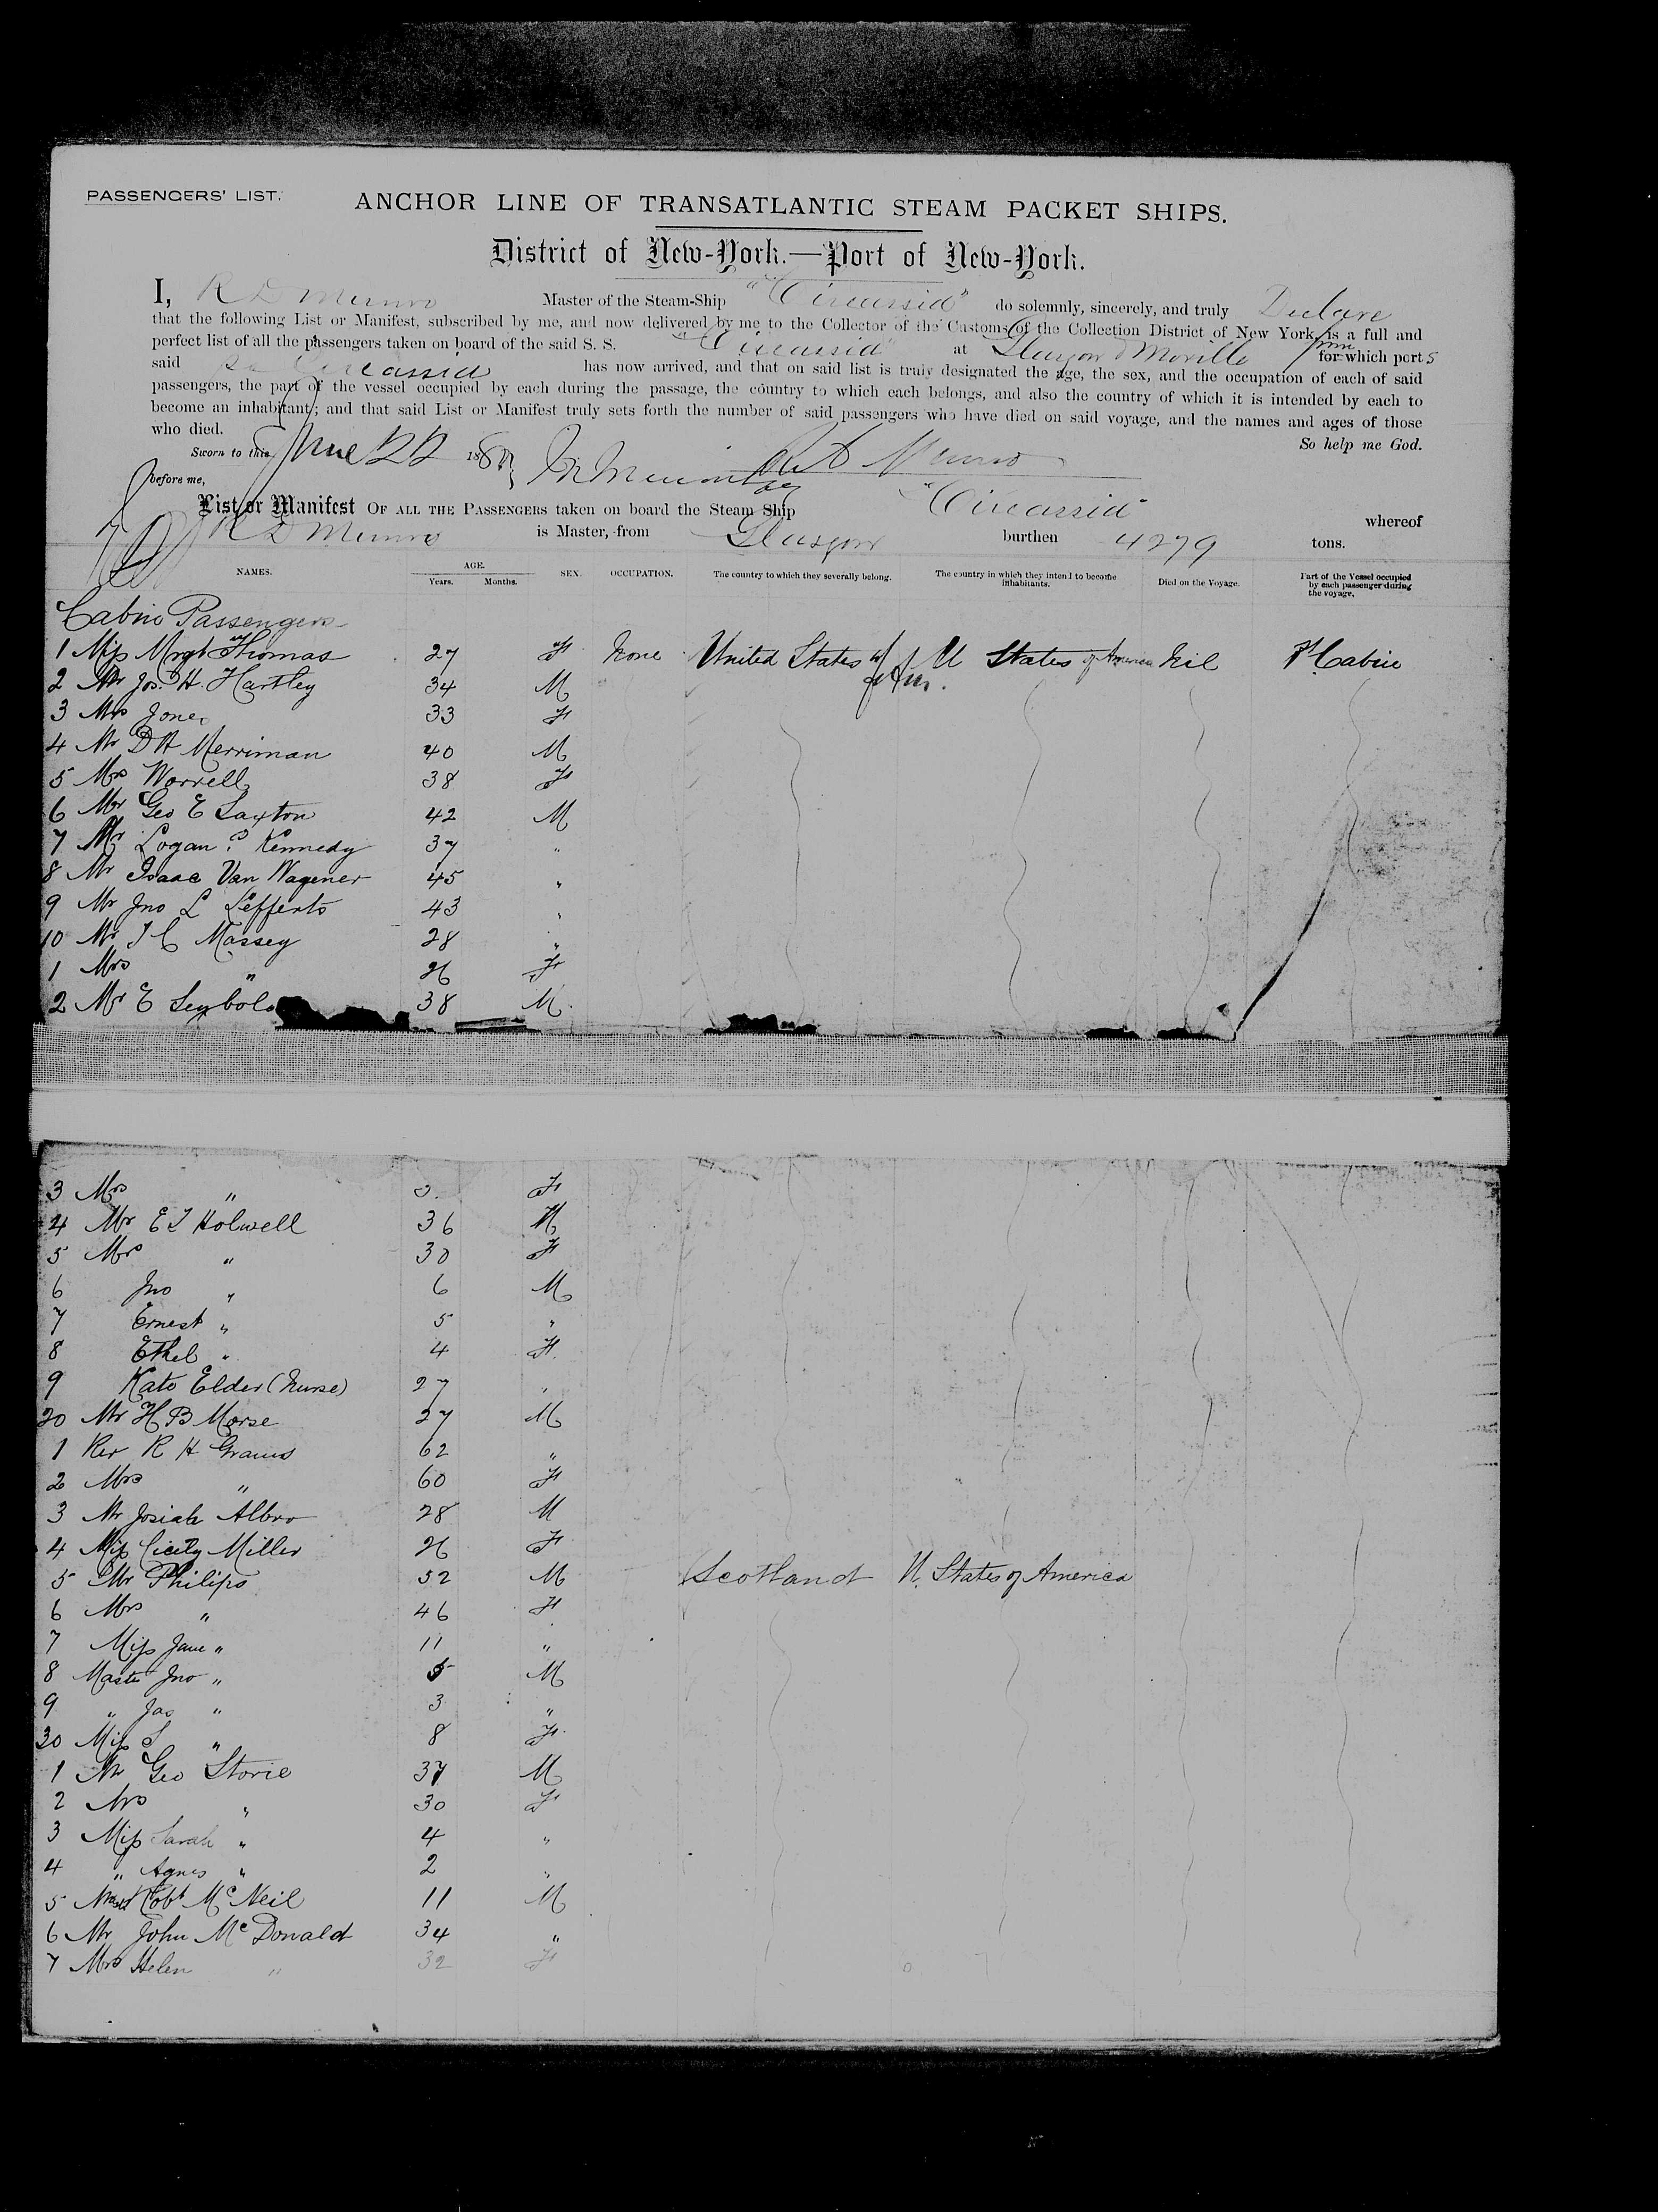 PASSENGERS' LIST.
ANCHOR LINE OF TRANSATLANTIC STEAM PACKET SHIPS.
District of New-York.—Port of New-York.
I, R D Munro Master of the Steam-Ship "Circassia" do solemnly, sincerely, and truly Declare
that the following List or Manifest, subscribed by me, and now delivered by me to the Collector of the Customs of the Collection District of New York, is a full and
perfect list of all the passengers taken on board of the said S. S. "Circassia" at Glasgow & Moville from for which ports
said SS Circassia has now arrived, and that on said list is truly designated the age, the sex, and the occupation of each of said
passengers, the part of the vessel occupied by each during the passage, the country to which each belongs, and also the country of which it is intended by each to
become an inhabitant; and that said List or Manifest truly sets forth the number of said passengers who have died on said voyage, and the names and ages of those
who died. So help me God.
Sworn to this June 22 188 R D Munro
before me,
List or Manifest OF ALL THE PASSENGERS taken on board the Steam Ship "Circassia" whereof
R D Munro is Master, from Glasgow burthen 4279 tons.
NAMES. AGE. Years. Months. SEX. OCCUPATION. The country to which they severally belong. The country in which they intend to become inhabitants. Died on the Voyage. Part of the Vessel occupied by each passenger during the voyage.
Cabin Passengers
1 Miss Mrgt Thomas 27 F None United States of Am. U States of America Nil Cabin
2 Mr Jos. H. Hartley 34 M
3 Mrs Jones 33 F
4 Mr D H Merriman 40 M
5 Mrs Worrell 38 F
6 Mr Geo E Saxton 42 M
7 Mr Logan Kennedy 37 "
8 Mr Isaac Van Wagener 45 "
9 Mr Jno L Lefferts 43 "
10 Mr J C Massey 28 "
1 Mrs " 26 F
2 Mr E 38 M
3 Mrs " F
4 Mr E J Holwell 36 M
5 Mrs " 30 F
6 Jno " 6 M
7 Ernest " 5 "
8 Ethel " 4 F
9 Kate Elder (Nurse) 27 "
20 Mr H B Morse 27 M
1 Rev R H 62 "
2 Mrs " 60 F
3 Mr Josiah Albro 28 M
4 Miss Cicely Miller 26 F
5 Mr Philips 52 M Scotland U. States of America
6 Mrs " 46 F
7 Miss Jane " 11 "
8 Master Jno " 5 M
9 " Jas " 3 "
30 Miss S " 8 F
1 Mr Geo Storie 37 M
2 Mrs " 30 F
3 Miss Sarah " 4 "
4 " Agnes " 2 "
5 Mast Robt McNeil 11 M
6 Mr John McDonald 34 "
7 Mrs Helen " 32 F